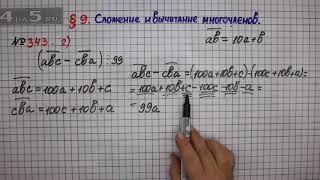 4 ГДЗ.РУ
§ 9. Сложение и вычитание многочленов.
№343. 2)
ab = 10a+b
(abc - cba) : 99
abc = 100a+10b+c
cba = 100c+10b+a
abc - cba = (100a+10b+c)-(100c+10b+a)=
= 100a+10b+c-100c-10b-a =
= 99a